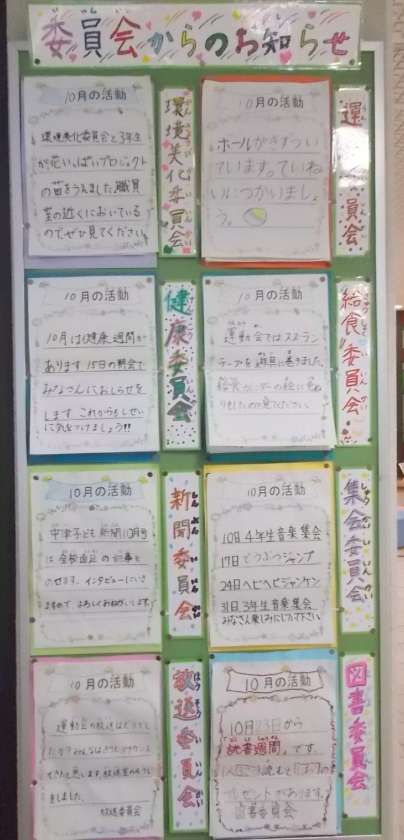 委員会からのお知らせ
10月の活動
環境美化委員会と3年生
が花いっぱいプロジェクト
の苗をうえました。職員
室の近くにおいている
のでぜひ見てください。
環境美化委員会
10月の活動
ホールがきずつい
ています。ていね
いにつかいましょ
う。
運 委員会
10月の活動
10月は健康週間が
あります 15日の朝会で
みなさんにおしらせを
します これからもしせい
に気をつけましょう!!
健康委員会
10月の活動
運動会ではスズラン
テープを 巻きました
給食 の絵に
見てください。
給食委員会
10月の活動
中津子ども新聞10月号
は 全校 の記事を
のせます。インタビューにいき
ますので よろしくおねがいします
新聞委員会
10月の活動
10日4年生音楽集会
17日どうぶつジャンプ
24日ヘビヘビジャンケン
31日3年生音楽集会
みなさん楽しみにしていて下さい
集会委員会
10月の活動
運動会の放送は
みんなはきはきとアナウンス
できたと思います。放送室の
をしました。
放送委員会
放送委員会
10月の活動
10月23日から
読書週間。です。
読むと
プレゼントがあります。
図書委員会
図書委員会